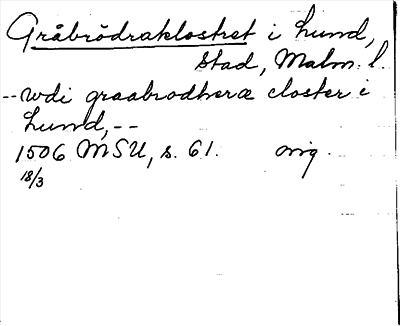 Gråbrödraklostret i Lund,
stad, Malm. l.
-- wdi graabrodheræ closter i
Lund, --
1506 MSU, s. 61. orig.
18/3